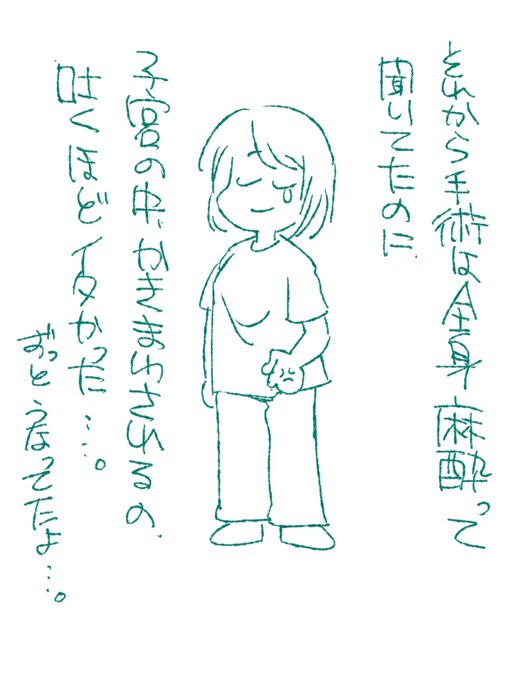 それから手術は全身麻酔って
聞いてたのに
子宮の中、かきまわされるの、
吐くほどイタかった…。
ずっとうなってたよ…。